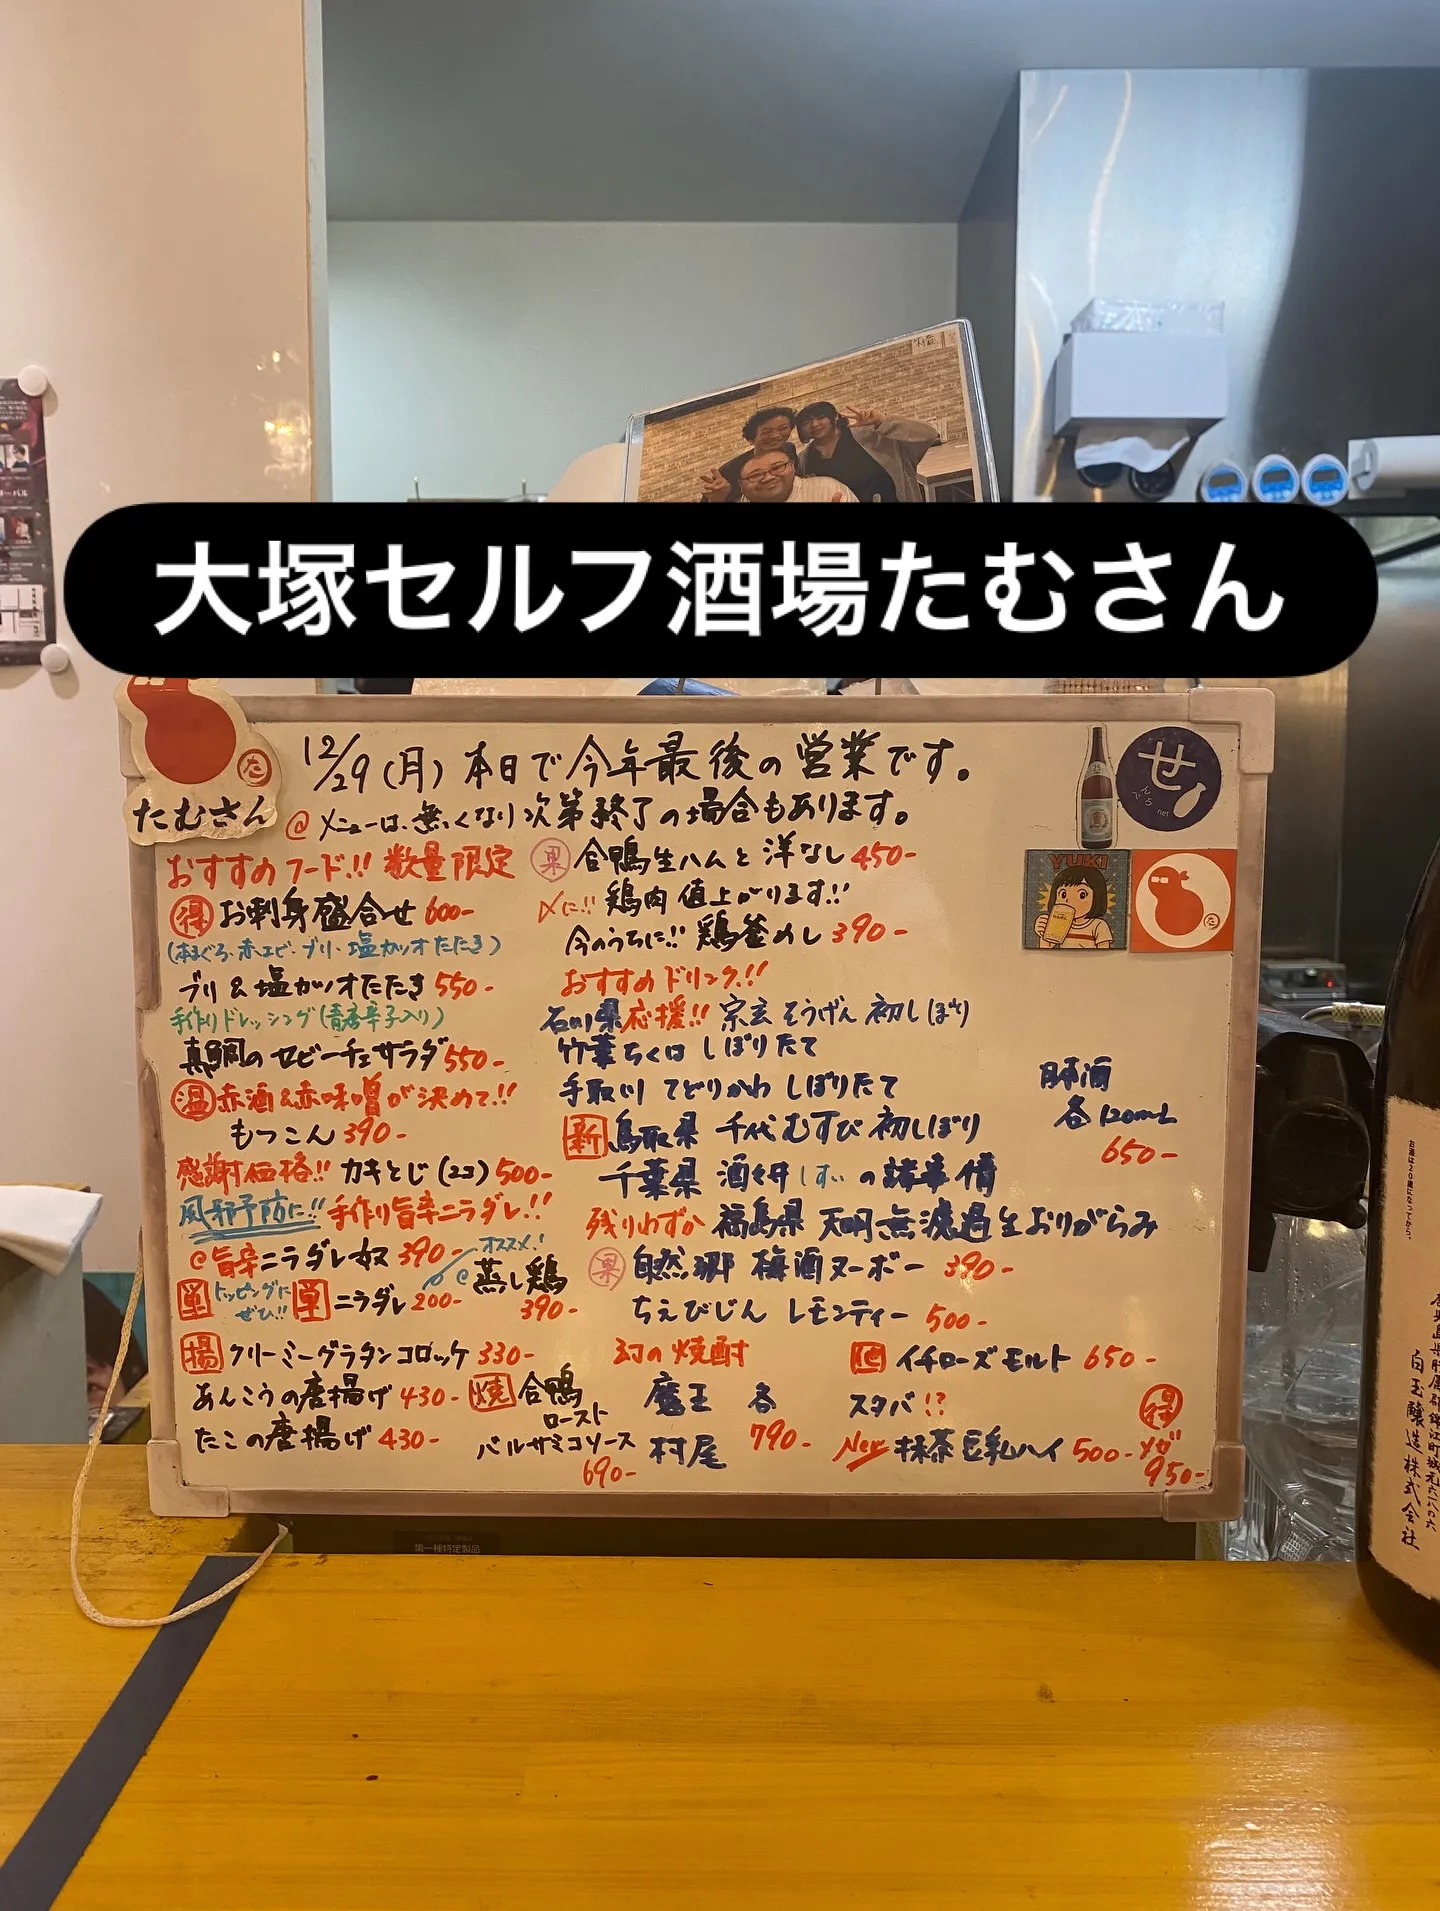 大塚セルフ酒場たむさん
たむさん
た
12/29(月)本日で今年最後の営業です。
@メニューは、無くなり次第終了の場合もあります。
おすすめフード!! 数量限定
得 お刺身盛合せ 600-
(本まぐろ、赤エビ、ブリ、塩カツオたたき)
ブリ&塩カツオたたき 550-
手作りドレッシング(青唐辛子入り)
真鯛のセビーチェサラダ 550-
温 赤酒&赤味噌が決めて!!
もつこん 390-
感謝価格!! カキとじ(2コ) 500-
風邪予防に!! 手作り旨辛ニラダレ!!
@旨辛ニラダレ奴 390-
オススメ!
@蒸し鶏
390-
単 トッピングにぜひ!! 単 ニラダレ 200-
揚 クリーミーグラタンコロッケ 330-
あんこうの唐揚げ 430-
たこの唐揚げ 430-
焼 合鴨
ロースト
バルサミコソース
690-
果 合鴨生ハムと洋なし 450-
〆に!! 鶏肉値上がります!!
今のうちに!! 鶏釜めし 390-
おすすめドリンク!!
石川県応援!! 宗玄 そうげん 初しぼり
竹葉 ちくは しぼりたて
手取川 てどりかわ しぼりたて
新 鳥取県 千代むすび 初しぼり
千葉県 酒々井 しすい の諸事情
残りわずか 福島県 天明無濾過生おりがらみ
豚酒
各120mL
650-
果 自然郷 梅酒ヌーボー 390-
ちえびじん レモンティー 500-
幻の焼酎
魔王 各
村尾 790-
イチローズモルト 650-
スタバ!?
New 抹茶豆乳ハイ 500-
得
メガ
950-
せ
んべろ
net
YUKI
た
第一種特定製品
お酒は20歳になってから。
白玉醸造株式会社